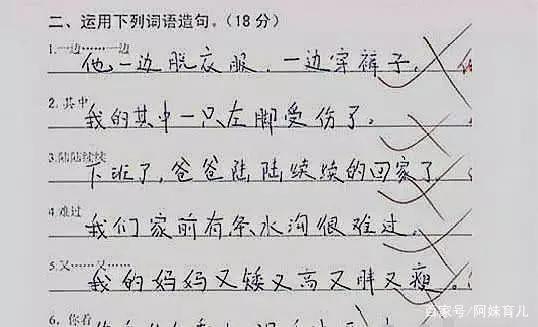 二、运用下列词语造句。(18分)
1.一边……一边
他一边脱衣服,一边穿裤子。
2.其中
我的其中一只左脚受伤了。
3.陆陆续续
下班了,爸爸陆陆续续的回家了。
4.难过
我们家前有条水沟很难过。
5.又……又……
我的妈妈又矮又高又胖又瘦。
6,你看
百家号/阿妹育儿